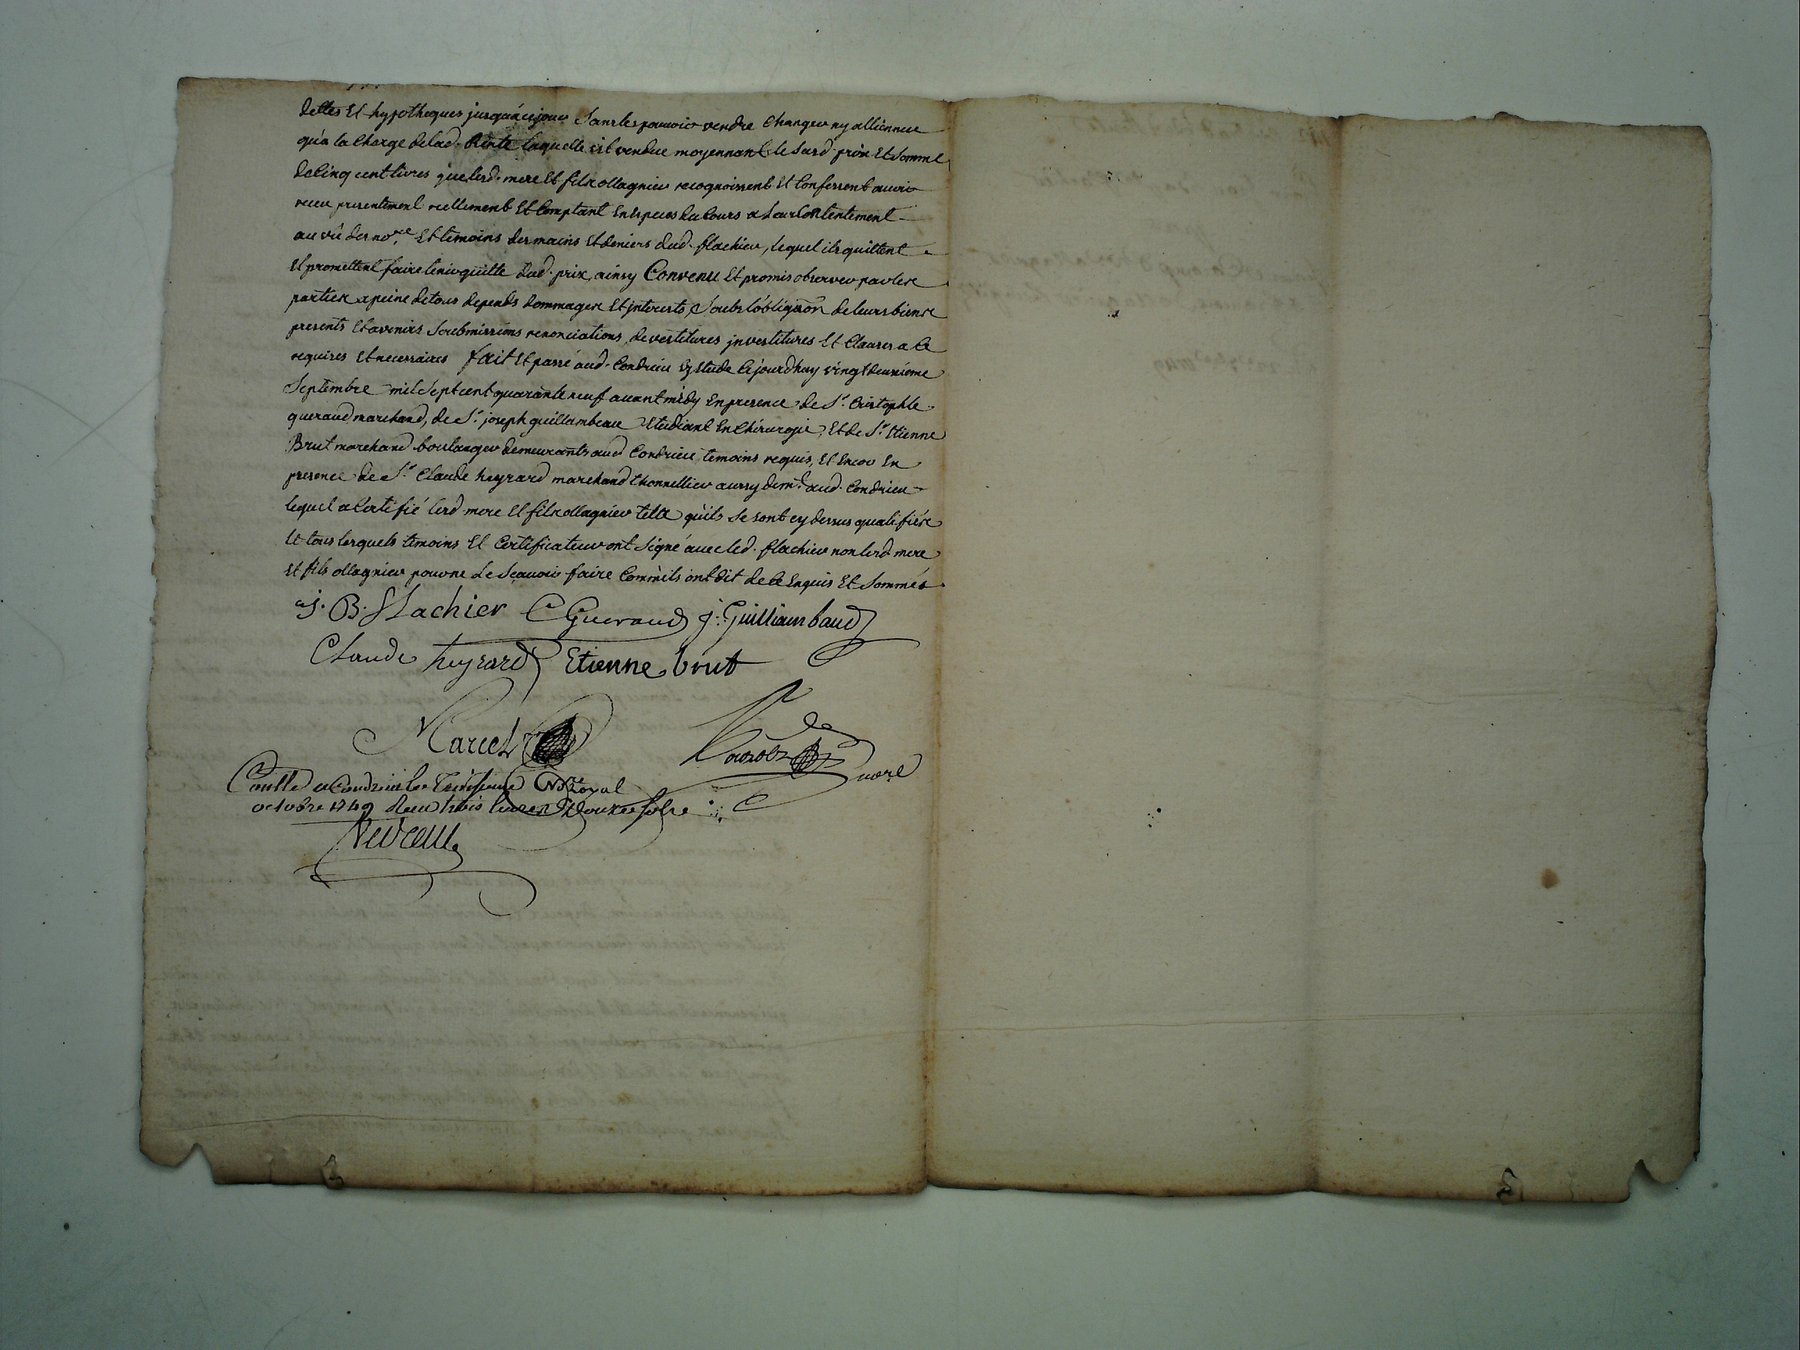 dettes Et hypotheques jusqu'a ce jour Sans les pouvoir vendre Changer ny allienner
qu'a la Charge de lad. Rente laquelle est vendue moyennant le Susd. prix Et Somme
de Cinq cent livres que lesd. mere Et fils ollagnier recognoissent Et Confessent avoir
receu presentement reellement Et Comptant En Especes du Cours a Leur Contentement
au vû des no.re Et temoins des mains Et deniers dud. flachier, lequel ils quittent
Et promettent faire tenir quitte dud. prix ainsy Convenu Et promis observer par les
parties a peine de tous depends dommages Et interests, Soubs l'obligaõn de leurs biens
presents Et avenirs Soubmissions renonciations, devestitures investitures Et Clauses a Ce
requises Et necessaires fait Et passé aud. Condrieu Estude Cejourdhuy vingtdeuxieme
Septembre mil Sept cent quarante neuf avant midy En presence de S.r Cristophle
gueraud marchand, de S.r joseph guillambeau Etudiant En Chirurgie, Et de S.r Etienne
Brut marchand boulanger demeurants aud Condrieu temoins requis, Et Encor En
presence de S.r Claude heyrard marchand Chonnellier aussy dem.t aud. Condrieu
lequel a Certifié lesd mere Et fils ollagnier tels qu'ils se sont cy dessus qualifiés
Et tous lesquels temoins Et Certificateur ont Signé avec led. flachier non lesd. mere
Et fils ollagnier pour ne le Sçavoir faire Comm'ils ont dit de Ce Enquis Et Sommés
J. B. Flachier C Gueraud j. Guilliambaud
Claude heyrard Etienne brut
Marcel
Conlle a Condrieu le Troisieme N.re Royal
octobre 1749 Receu trois livres douze sols